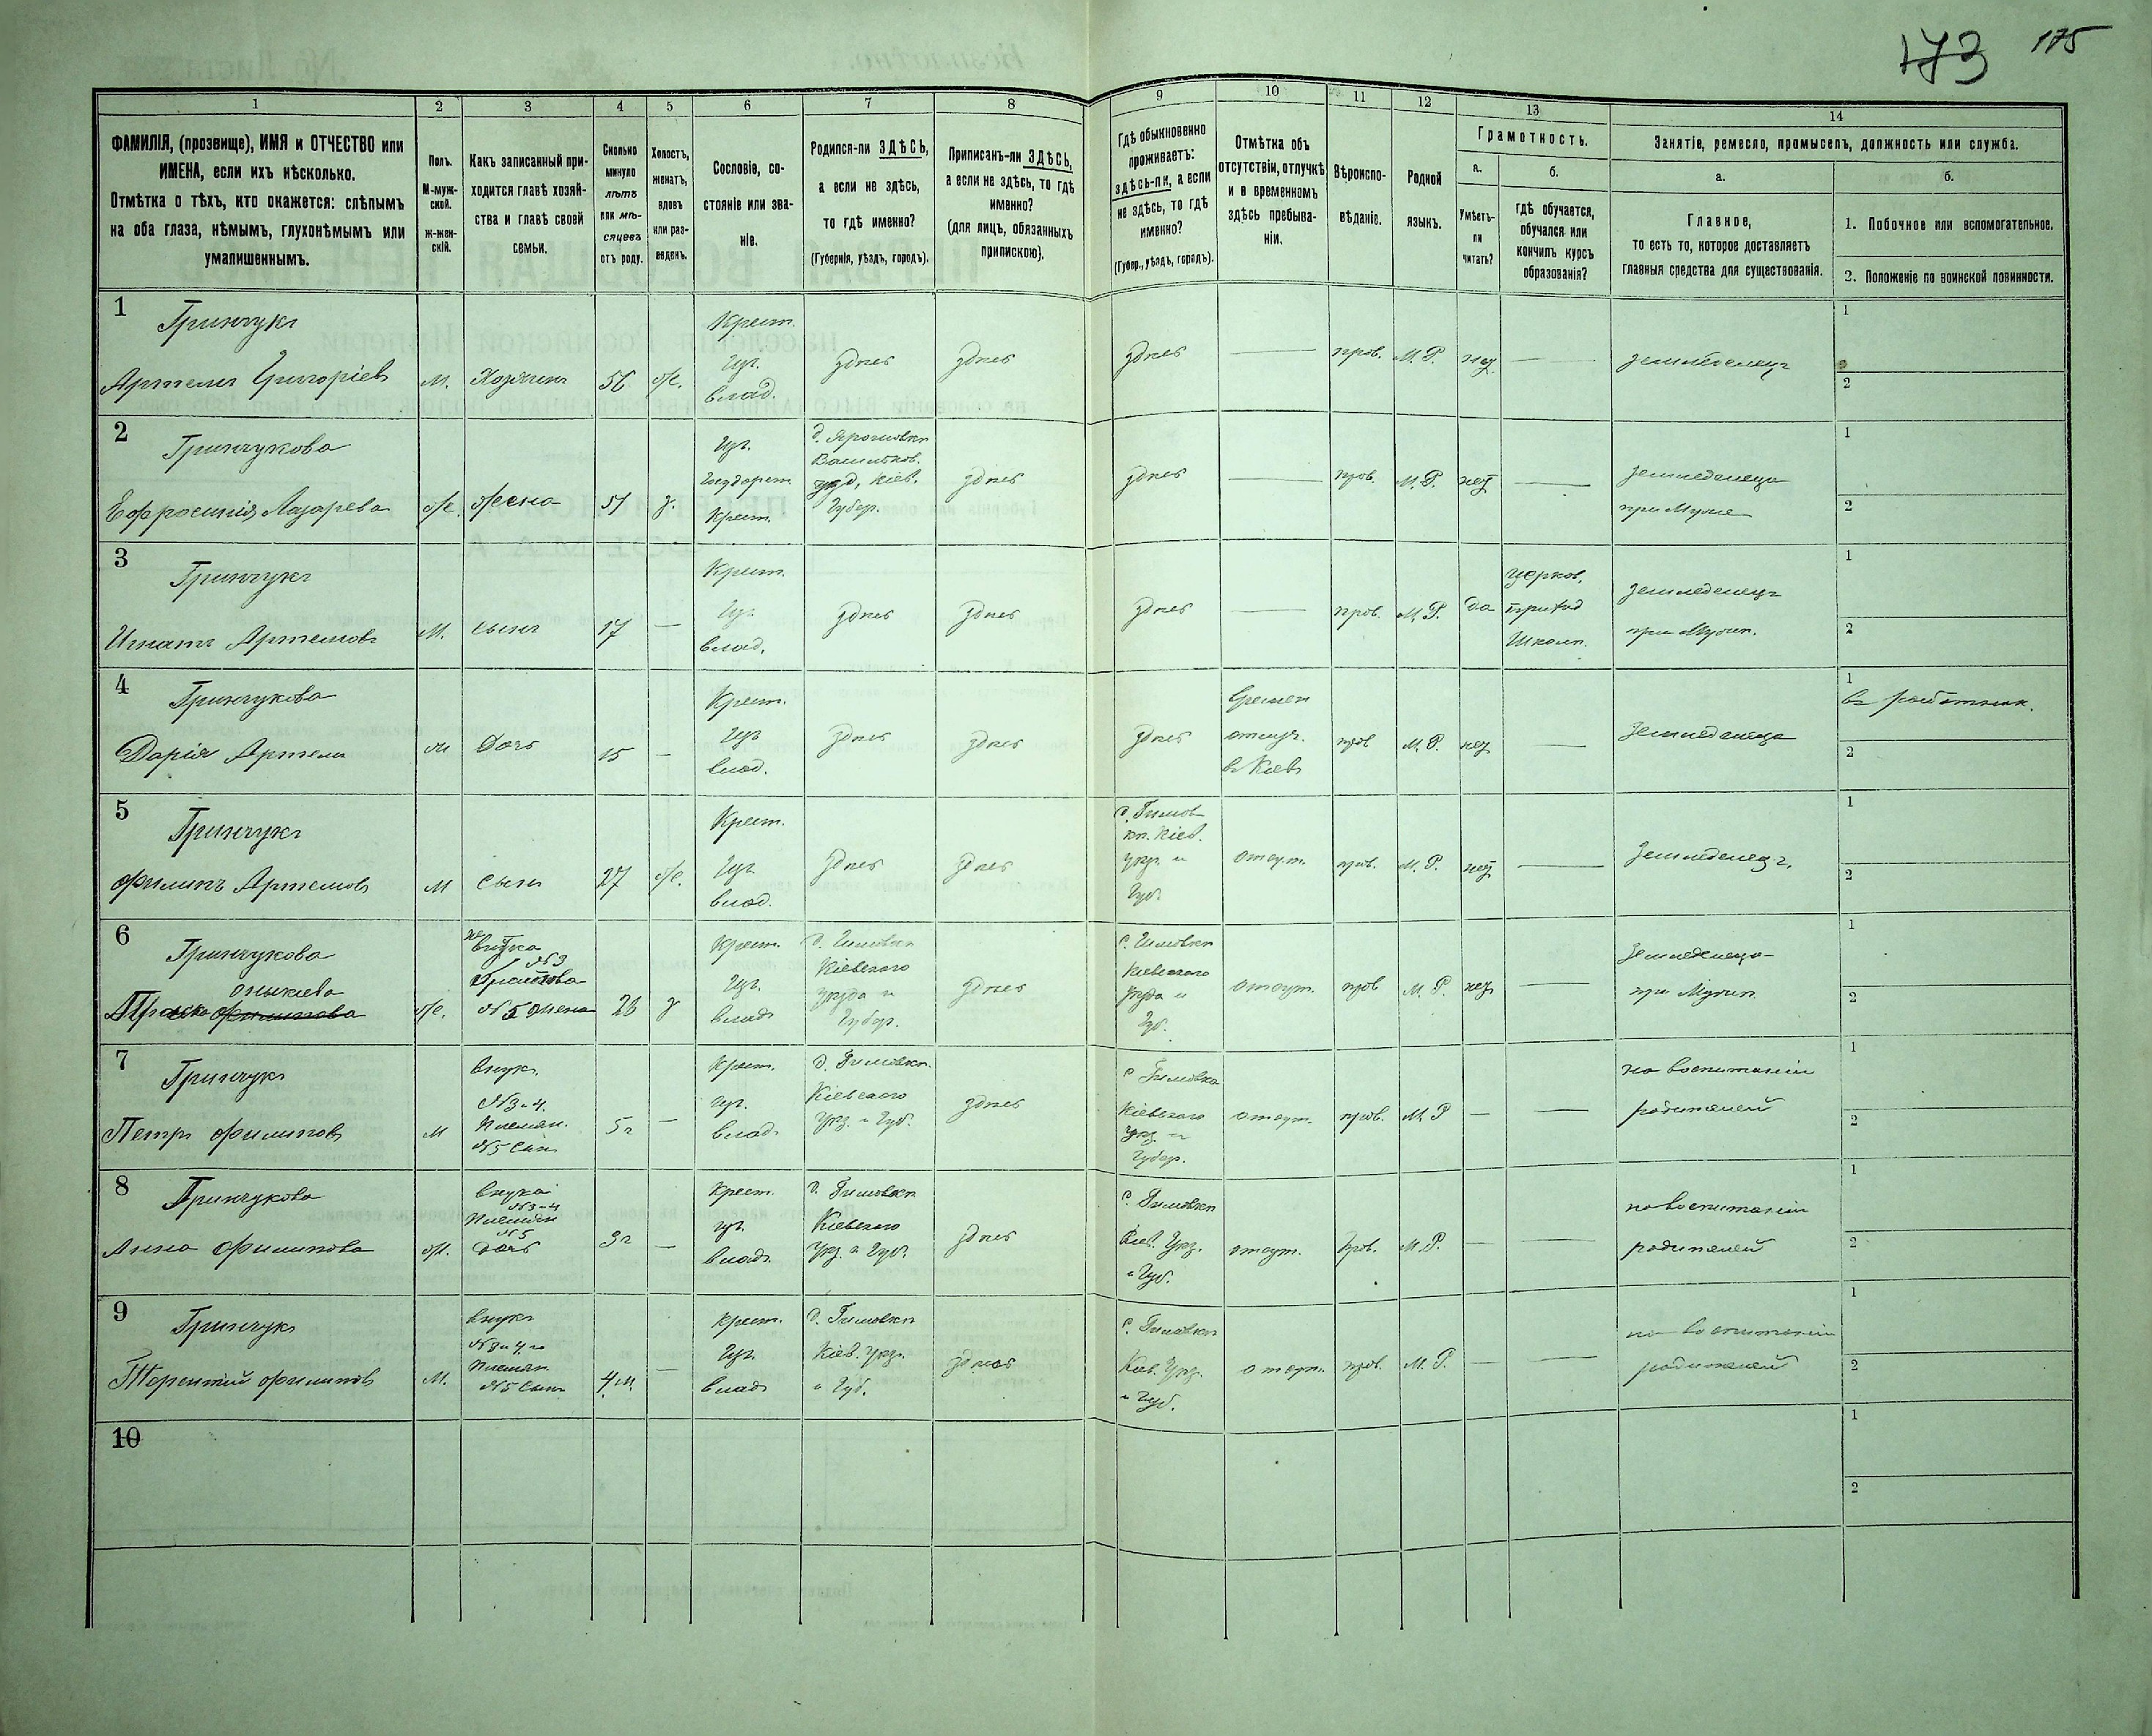 173 175
1 2 3 4 5 6 7 8 9 10 11 12 13 14
ФАМИЛІЯ, (прозвище), ИМЯ и ОТЧЕСТВО или
ИМЕНА, если ихъ нѣсколько.
Отмѣтка о тѣхъ, кто окажется: слѣпымъ
на оба глаза, нѣмымъ, глухонѣмымъ или
умалишеннымъ.
Полъ.
М-муж-
ской.
Ж-жен-
скій.
Какъ записанный при-
ходится главѣ хозяй-
ства и главѣ своей
семьи.
Сколько
минуло
лѣтъ
или мѣ-
сяцевъ
отъ роду.
Холостъ,
женатъ,
вдовъ
или раз-
веденъ.
Сословіе, со-
стояніе или зва-
ніе.
Родился-ли ЗДѢСЬ,
а если не здѣсь,
то гдѣ именно?
(Губернія, уѣздъ, городъ).
Приписанъ-ли ЗДѢСЬ,
а если не здѣсь, то гдѣ
именно?
(для лицъ, обязанныхъ
припискою).
Гдѣ обыкновенно
проживаетъ:
здѣсь-ли, а если
не здѣсь, то гдѣ
именно?
(Губер., уѣздъ, городъ).
Отмѣтка объ
отсутствіи, отлучкѣ
и о временномъ
здѣсь пребыва-
ніи.
Вѣроиспо-
вѣданіе.
Родной
языкъ.
Грамотность.
а.
Умѣетъ-
ли
читать?
б.
гдѣ обучается,
обучался или
кончилъ курсъ
образованія?
Занятіе, ремесло, промыселъ, должность или служба.
а.
Главное,
то есть то, которое доставляетъ
главныя средства для существованія.
б.
1. Побочное или вспомогательное.
2. Положеніе по воинской повинности.
1
Гринчукъ
Артемъ Григоріев
м. Хозяинъ 56 ж.
Крест.
из.
влад.
здѣсь здѣсь здѣсь — пров. М. Р. нѣт — земледелецъ
1
2
2
Гринчукова
Ефросинія Лазарева
ж. жена 51 з.
из.
Государст.
Крест.
Васильков.
уезд, Кіев.
Губер.
здѣсь здѣсь — пров. М. Р. нет —
земледелица
при муже
1
2
3
Гринчукъ
Игнатъ Артемовъ
М. сынъ 17 —
Крест.
из.
влад.
здѣсь здѣсь здѣсь — пров. М. Р. да
церков.
приход
школ.
земледелец
1
2
4
Гринчукова
Дарія Артема
дочь 15 —
Крест.
из
влад.
здѣсь здѣсь здѣсь
времен
отлуч.
в Киев
пров М. Р. нет —
земледелица
1
в работник.
2
5
Гринчукъ
Филипъ Артемовъ
м сынъ 27 ж.
Крест.
из
влад.
здѣсь здѣсь
Кіев.
уез. и
Губ.
отсут. пров. М. Р. нет —
земледелецъ
1
2
6
Гринчукова
№ 5 жена
ж. 26 з
Крест.
из.
влад
Кіевского
уезда и
Губер.
здѣсь
Кіевского
уезда и
Губ.
отсут. пров М. Р. нет —
земледелица
1
2
7
Гринчукъ
Петръ Филиповъ
м
внукъ
№ 3 и 4.
племян.
№ 5 сын
5 г —
Крест.
из.
влад.
Кіевского
Уез. и Губ.
здѣсь
Кіевского
Уез. и
Губер.
отсут. пров. М. Р — —
на воспитаніи
родителей
1
2
8
Гринчукова
Анна Филипова
ж.
внука
№ 3 и 4
племян
№ 5
дочь
3 г —
Крест.
из
влад.
Кіевского
Уез. и Губ.
здѣсь
Кіев. Уез.
и Губ.
отсут. пров. М. Р. — —
на воспитаніи
родителей
1
2
9
Гринчукъ
Терентій Филиповъ
М.
внукъ
племян.
№ 5 сынъ
4 м. —
Крест.
из.
влад
Кіев. Уез.
и Губ.
здѣсь
Кіев. Уез.
и Губ.
отсут. пров. М. Р. — —
на воспитаніи
родителей
1
2
10
1
2